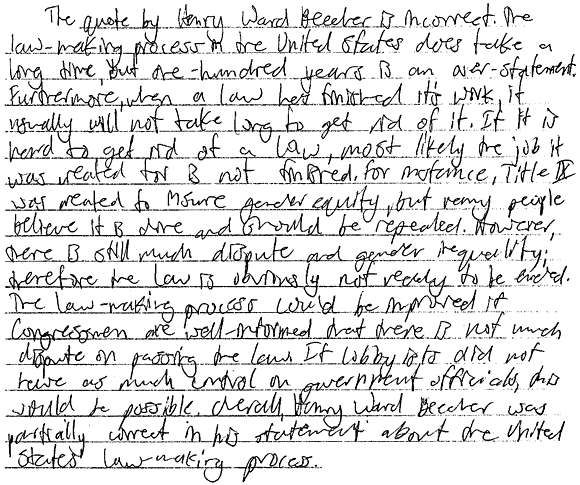 The quote by Henry Ward Beecher is incorrect. The
law-making process in the United States does take a
long time, but one-hundred years is an over-statement.
Furthermore, when a law has finished it's work, it
usually will not take long to get rid of it. If it is
hard to get rid of a law, most likely the job it
was created for is not finished. For instance, Title IX
was created to insure gender equity, but many people
believe it is done and should be repealed. However,
there is still much dispute and gender inequality;
therefore the law is obviously not ready to be ended.
The law-making process could be improved if
Congressmen are well-informed that there is not much
dispute on passing the law. If lobbyists did not
have as much control on government officials, this
would be possible. Overall, Henry Ward Beecher was
partially correct in his statement about the United
States' law-making process.